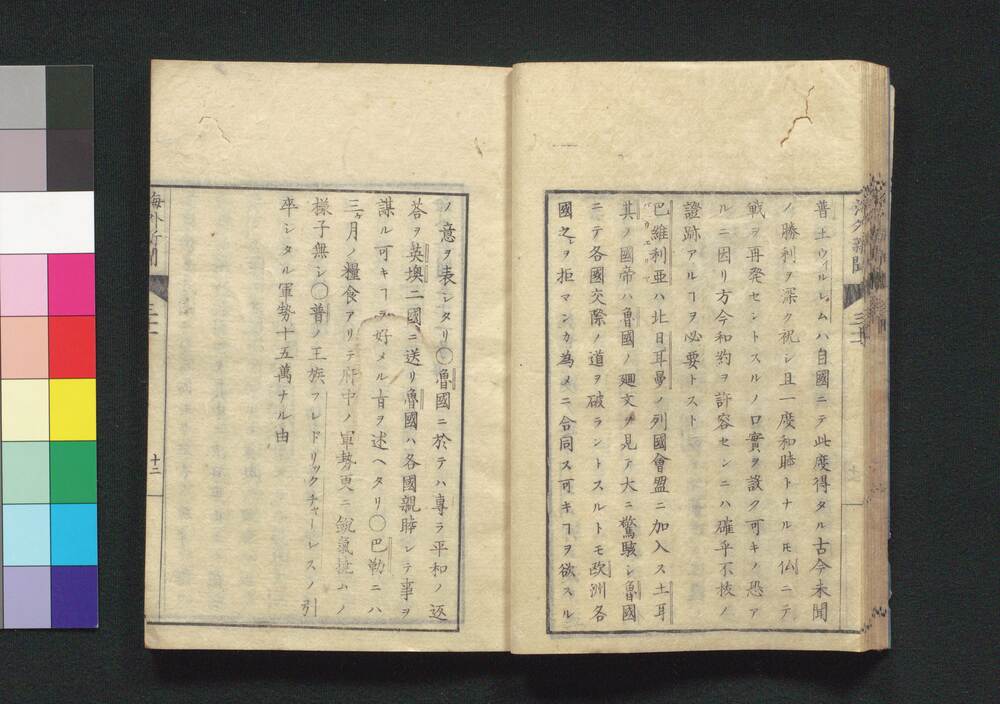 普王ウィルレムハ自國ニテ此度得タル古今未聞
ノ勝利ヲ深ク祝シ且一度和睦トナル𪜈仏ニテ
戦ヲ再発セントスルノ口實ヲ設ク可キノ恐ア
ルニ因リ方今和約ヲ許容センニハ確乎不抜ノ
證跡アルヿヲ必要トスト
巴維利亜ハ北日耳曼ノ列國會盟ニ加入ス土耳
其ノ國帝ハ魯國ノ廻文ヲ見テ大ニ驚駭シ魯國
ニテ各國交際ノ道ヲ破ラントスルトモ欧洲各
國之ヲ拒マンカ為メニ合同ス可キヿヲ欲スル
海外新聞
ノ意ヲ表シタリ〇魯國ニ於テハ專ラ平和ノ返
荅ヲ英墺二國ニ送リ魯國ハ各國親睦シテ事ヲ
謀ル可キヿヲ好メル旨ヲ述ヘタリ〇巴勒ニハ
三ヶ月ノ糧食アリテ府中ノ軍勢更ニ鋭氣撓ムノ
様子無シ〇普ノ王族フレドリックチャーレスノ引
卒シタル軍勢十五萬ナル由
海外新聞
十二